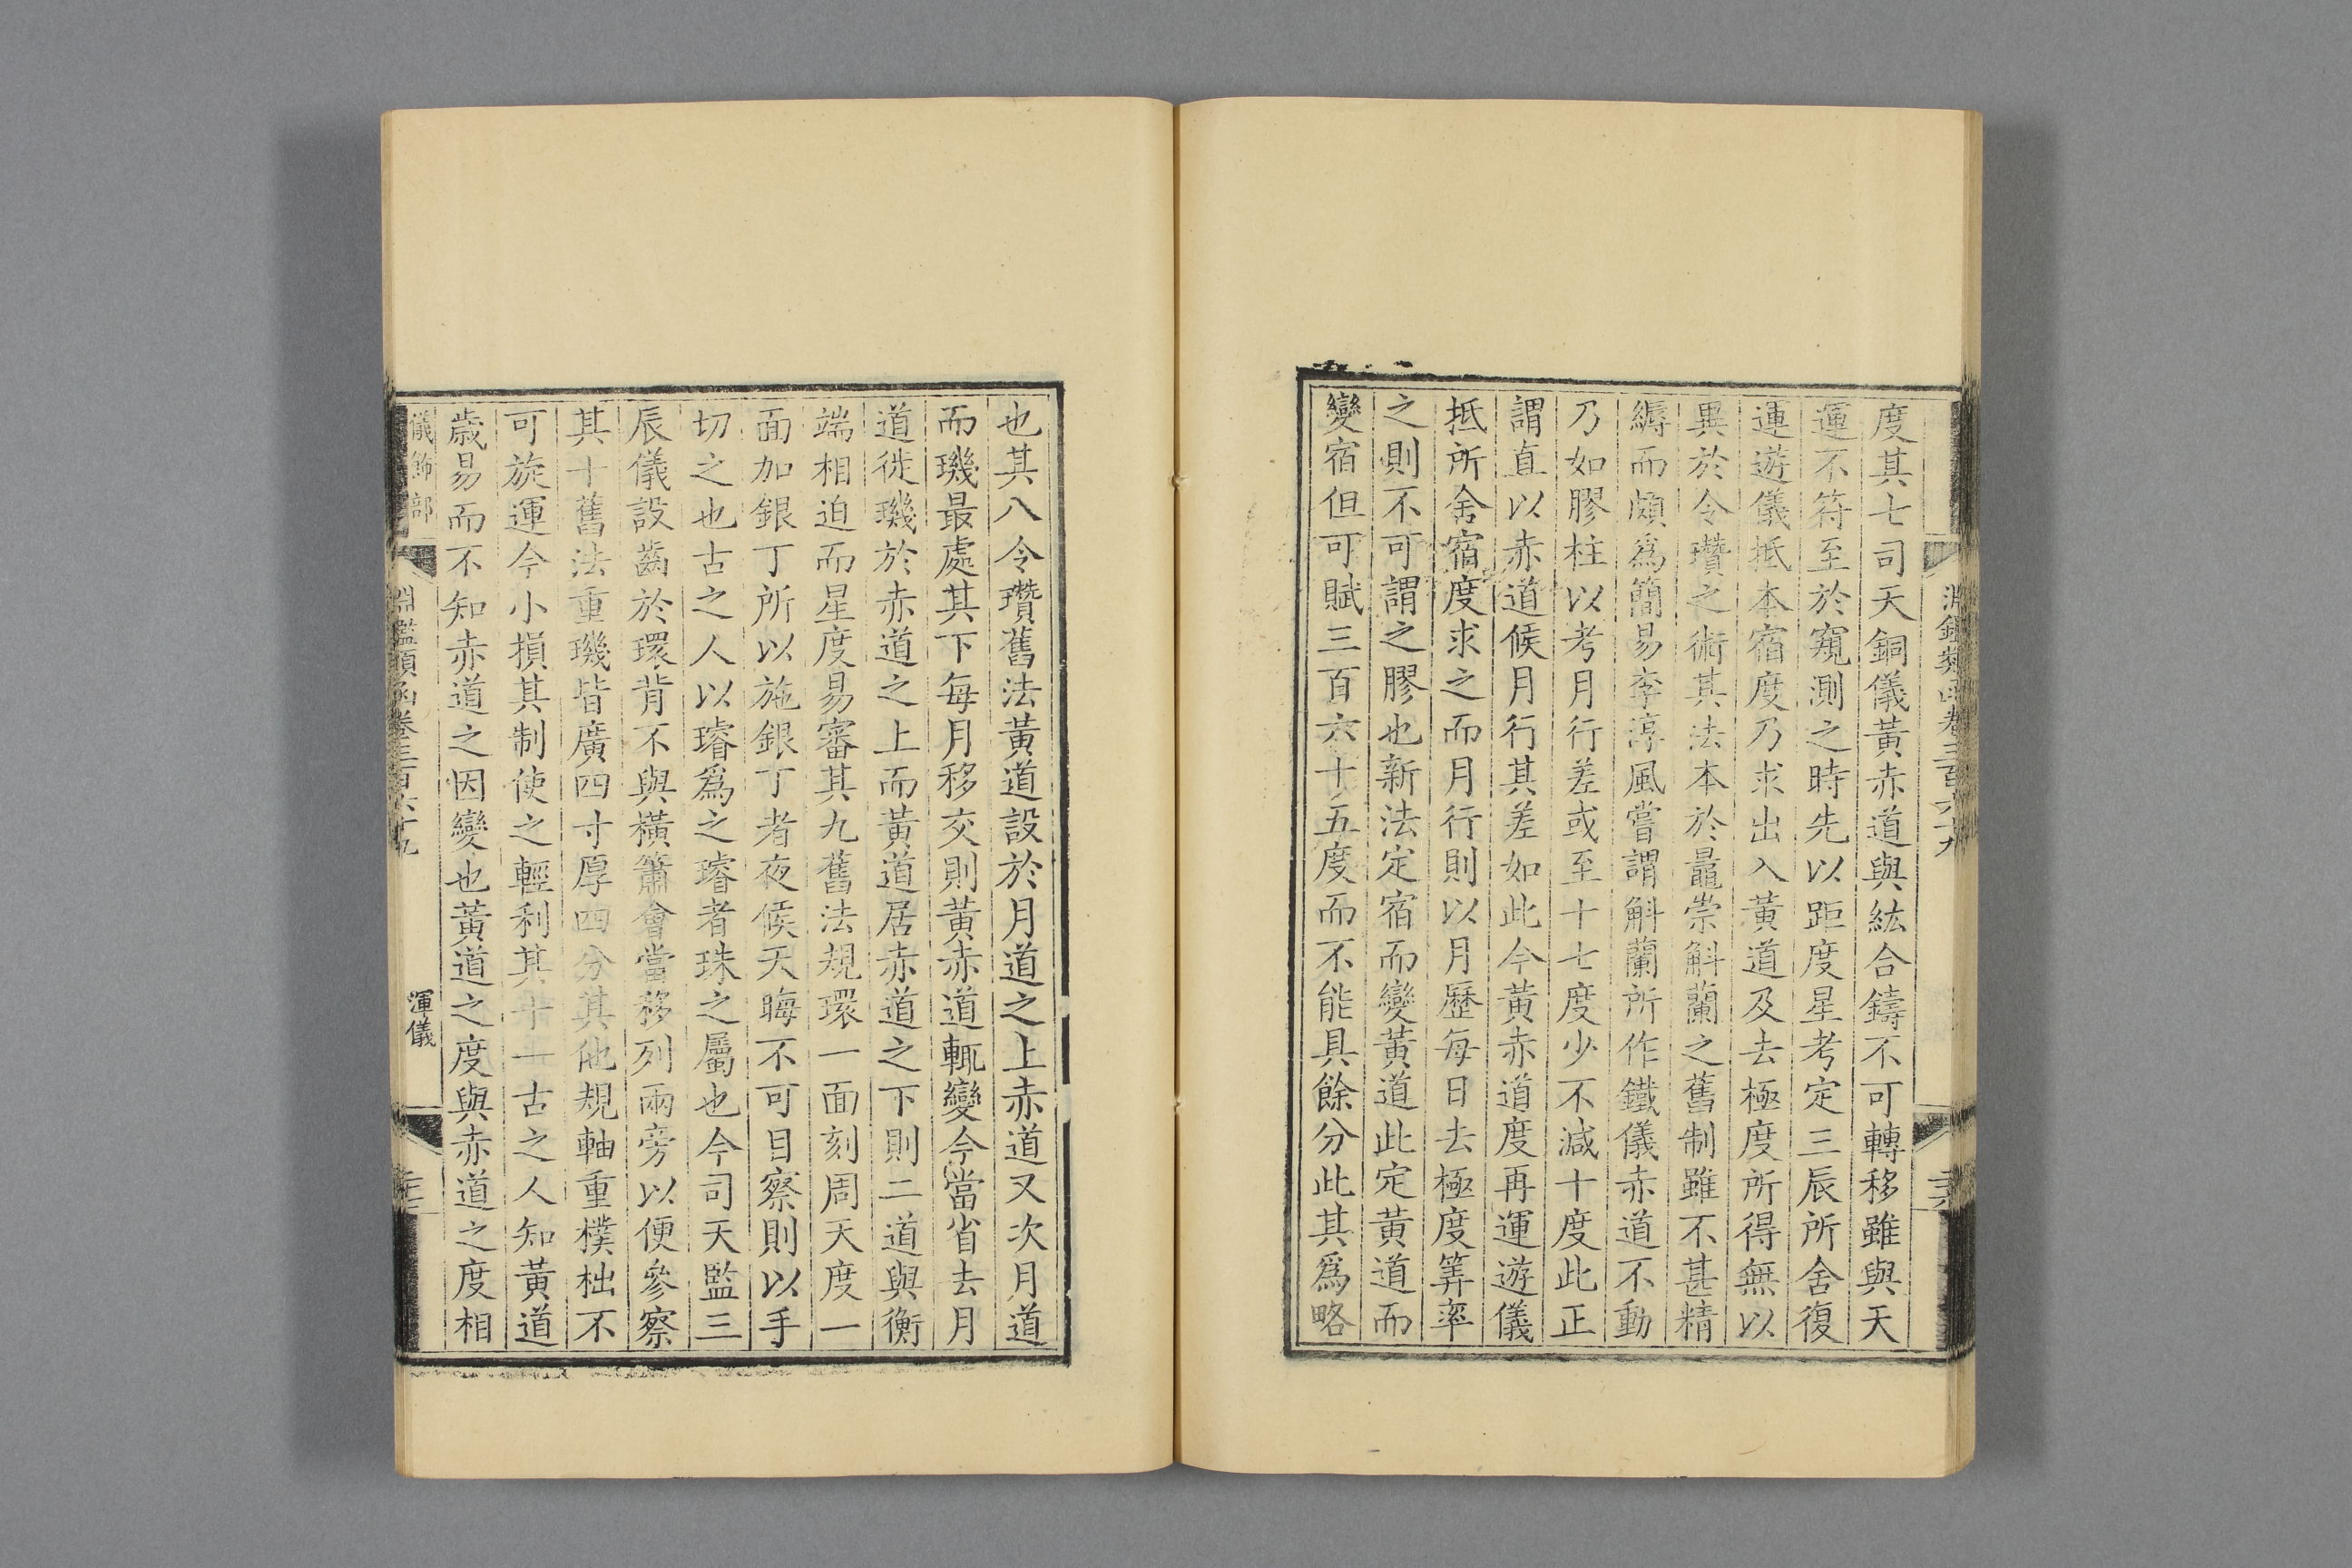 度其七司天銅儀黃赤道與紘合鑄不可轉移雖與天
運不符至於窺測之時先以距度星考定三辰所舍復
運遊儀抵本宿度乃求出入黃道及去極度所得無以
異於令瓚之術其法本於鼂崇斛蘭之舊制雖不甚精
縟而頗為簡易李淳風嘗謂斛蘭所作鐵儀赤道不動
乃如膠柱以考月行差或至十七度少不減十度此正
謂直以赤道候月行其差如此今黃赤道度再運遊儀
抵所舍宿度求之而月行則以月歷每日去極度筭率
之則不可謂之膠也新法定宿而變黃道此定黃道而
變宿但可賦三百六十五度而不能具餘分此其為略
也其八令瓚舊法黃道設於月道之上赤道又次月道
而璣最處其下每月移交則黃赤道輒變今當省去月
道徙璣於赤道之上而黃道居赤道之下則二道與衡
端相迫而星度易審其九舊法規環一面刻周天度一
面加銀丁所以施銀丁者夜候天晦不可目察則以手
切之也古之人以璿為之璿者珠之屬也今司天監三
辰儀設齒於環背不與橫簫會當移列兩旁以便參察
其十舊法重璣皆廣四寸厚四分其他規軸重樸拙不
可旋運今小損其制使之輕利其十一古之人知黃道
歲易而不知赤道之因變也黃道之度與赤道之度相
儀飾部
淵鑑類函卷三百六十九
渾儀